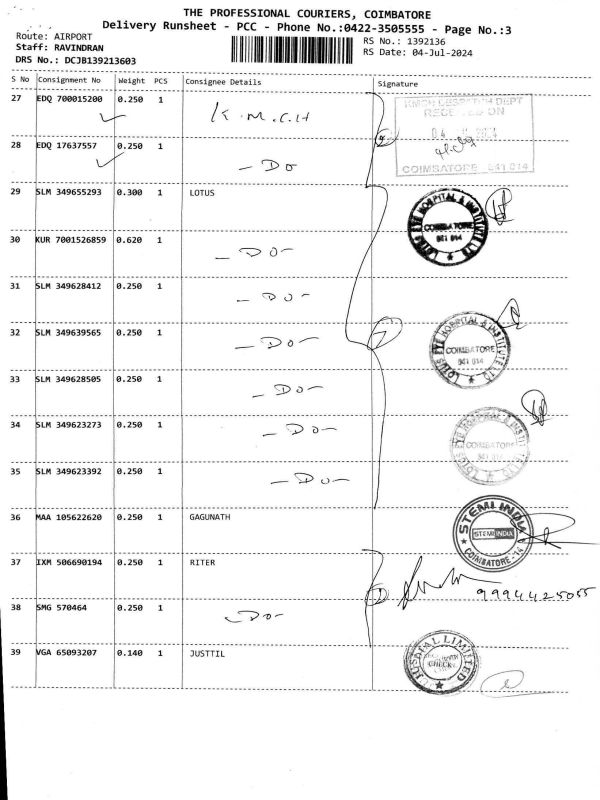 THE PROFESSIONAL COURIERS, COIMBATORE
Delivery Runsheet - PCC - Phone No.:0422-3505555 - Page No.:3
Route: AIRPORT
Staff: RAVINDRAN
DRS No.: DCJB139213603
RS No.: 1392136
RS Date: 04-Jul-2024
S No Consignment No Weight PCS Consignee Details Signature
27 EDQ 700015200 0.250 1 K.M.C.H
KMCH DESPATCH DEPT
RECEIVED ON
28 EDQ 17637557 0.250 1 - Do
COIMBATORE 641 014
29 SLM 349655293 0.300 1 LOTUS
LOTUS EYE HOSPITAL & INSTITUTE LTD
COIMBATORE
641 014
30 KUR 7001526859 0.620 1 - Do -
31 SLM 349628412 0.250 1 - Do -
32 SLM 349639565 0.250 1 - Do -
7
LOTUS EYE HOSPITAL & INSTITUTE LTD
COIMBATORE
641 014
33 SLM 349628505 0.250 1 - Do -
34 SLM 349623273 0.250 1 - Do -
LOTUS EYE HOSPITAL & INSTITUTE LTD
COIMBATORE
35 SLM 349623392 0.250 1 - Do -
36 MAA 105622620 0.250 1 GAGUNATH
STEMI INDIA
STEMI INDIA
COIMBATORE - 14
37 IXM 506690194 0.250 1 RITER
9994425055
38 SMG 570464 0.250 1 - Do -
39 VGA 65093207 0.140 1 JUSTTIL
JUSTDIAL LIMITED
CHECK